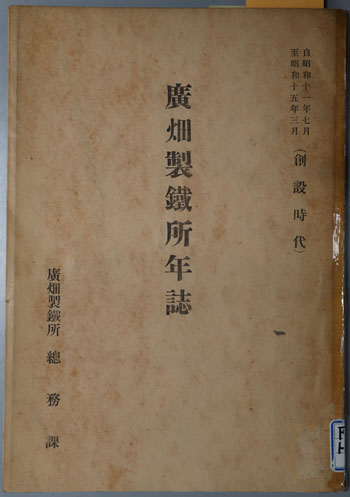 自昭和十一年七月
至昭和十五年三月
(創設時代)
廣畑製鐵所年誌
廣畑製鐵所 總務課